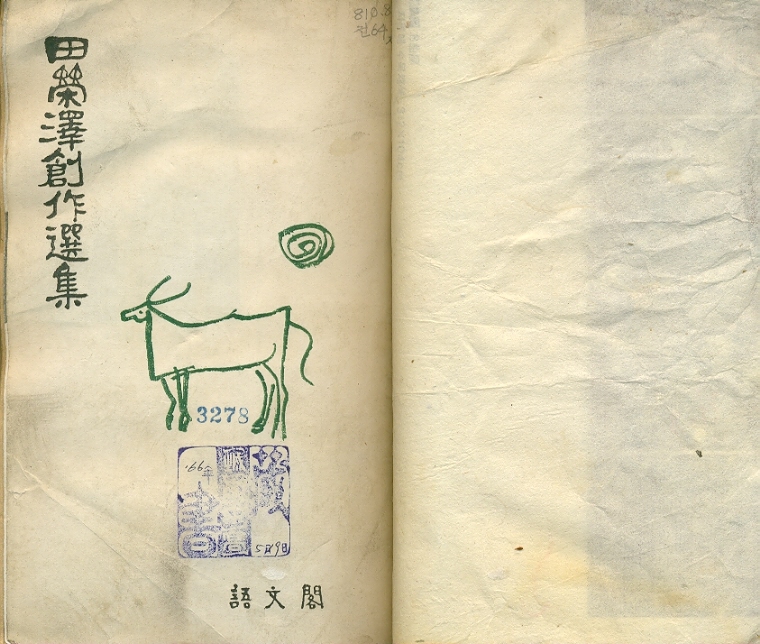 810.8
전64
田榮澤創作選集
3278
'66年
5月9日
語文閣